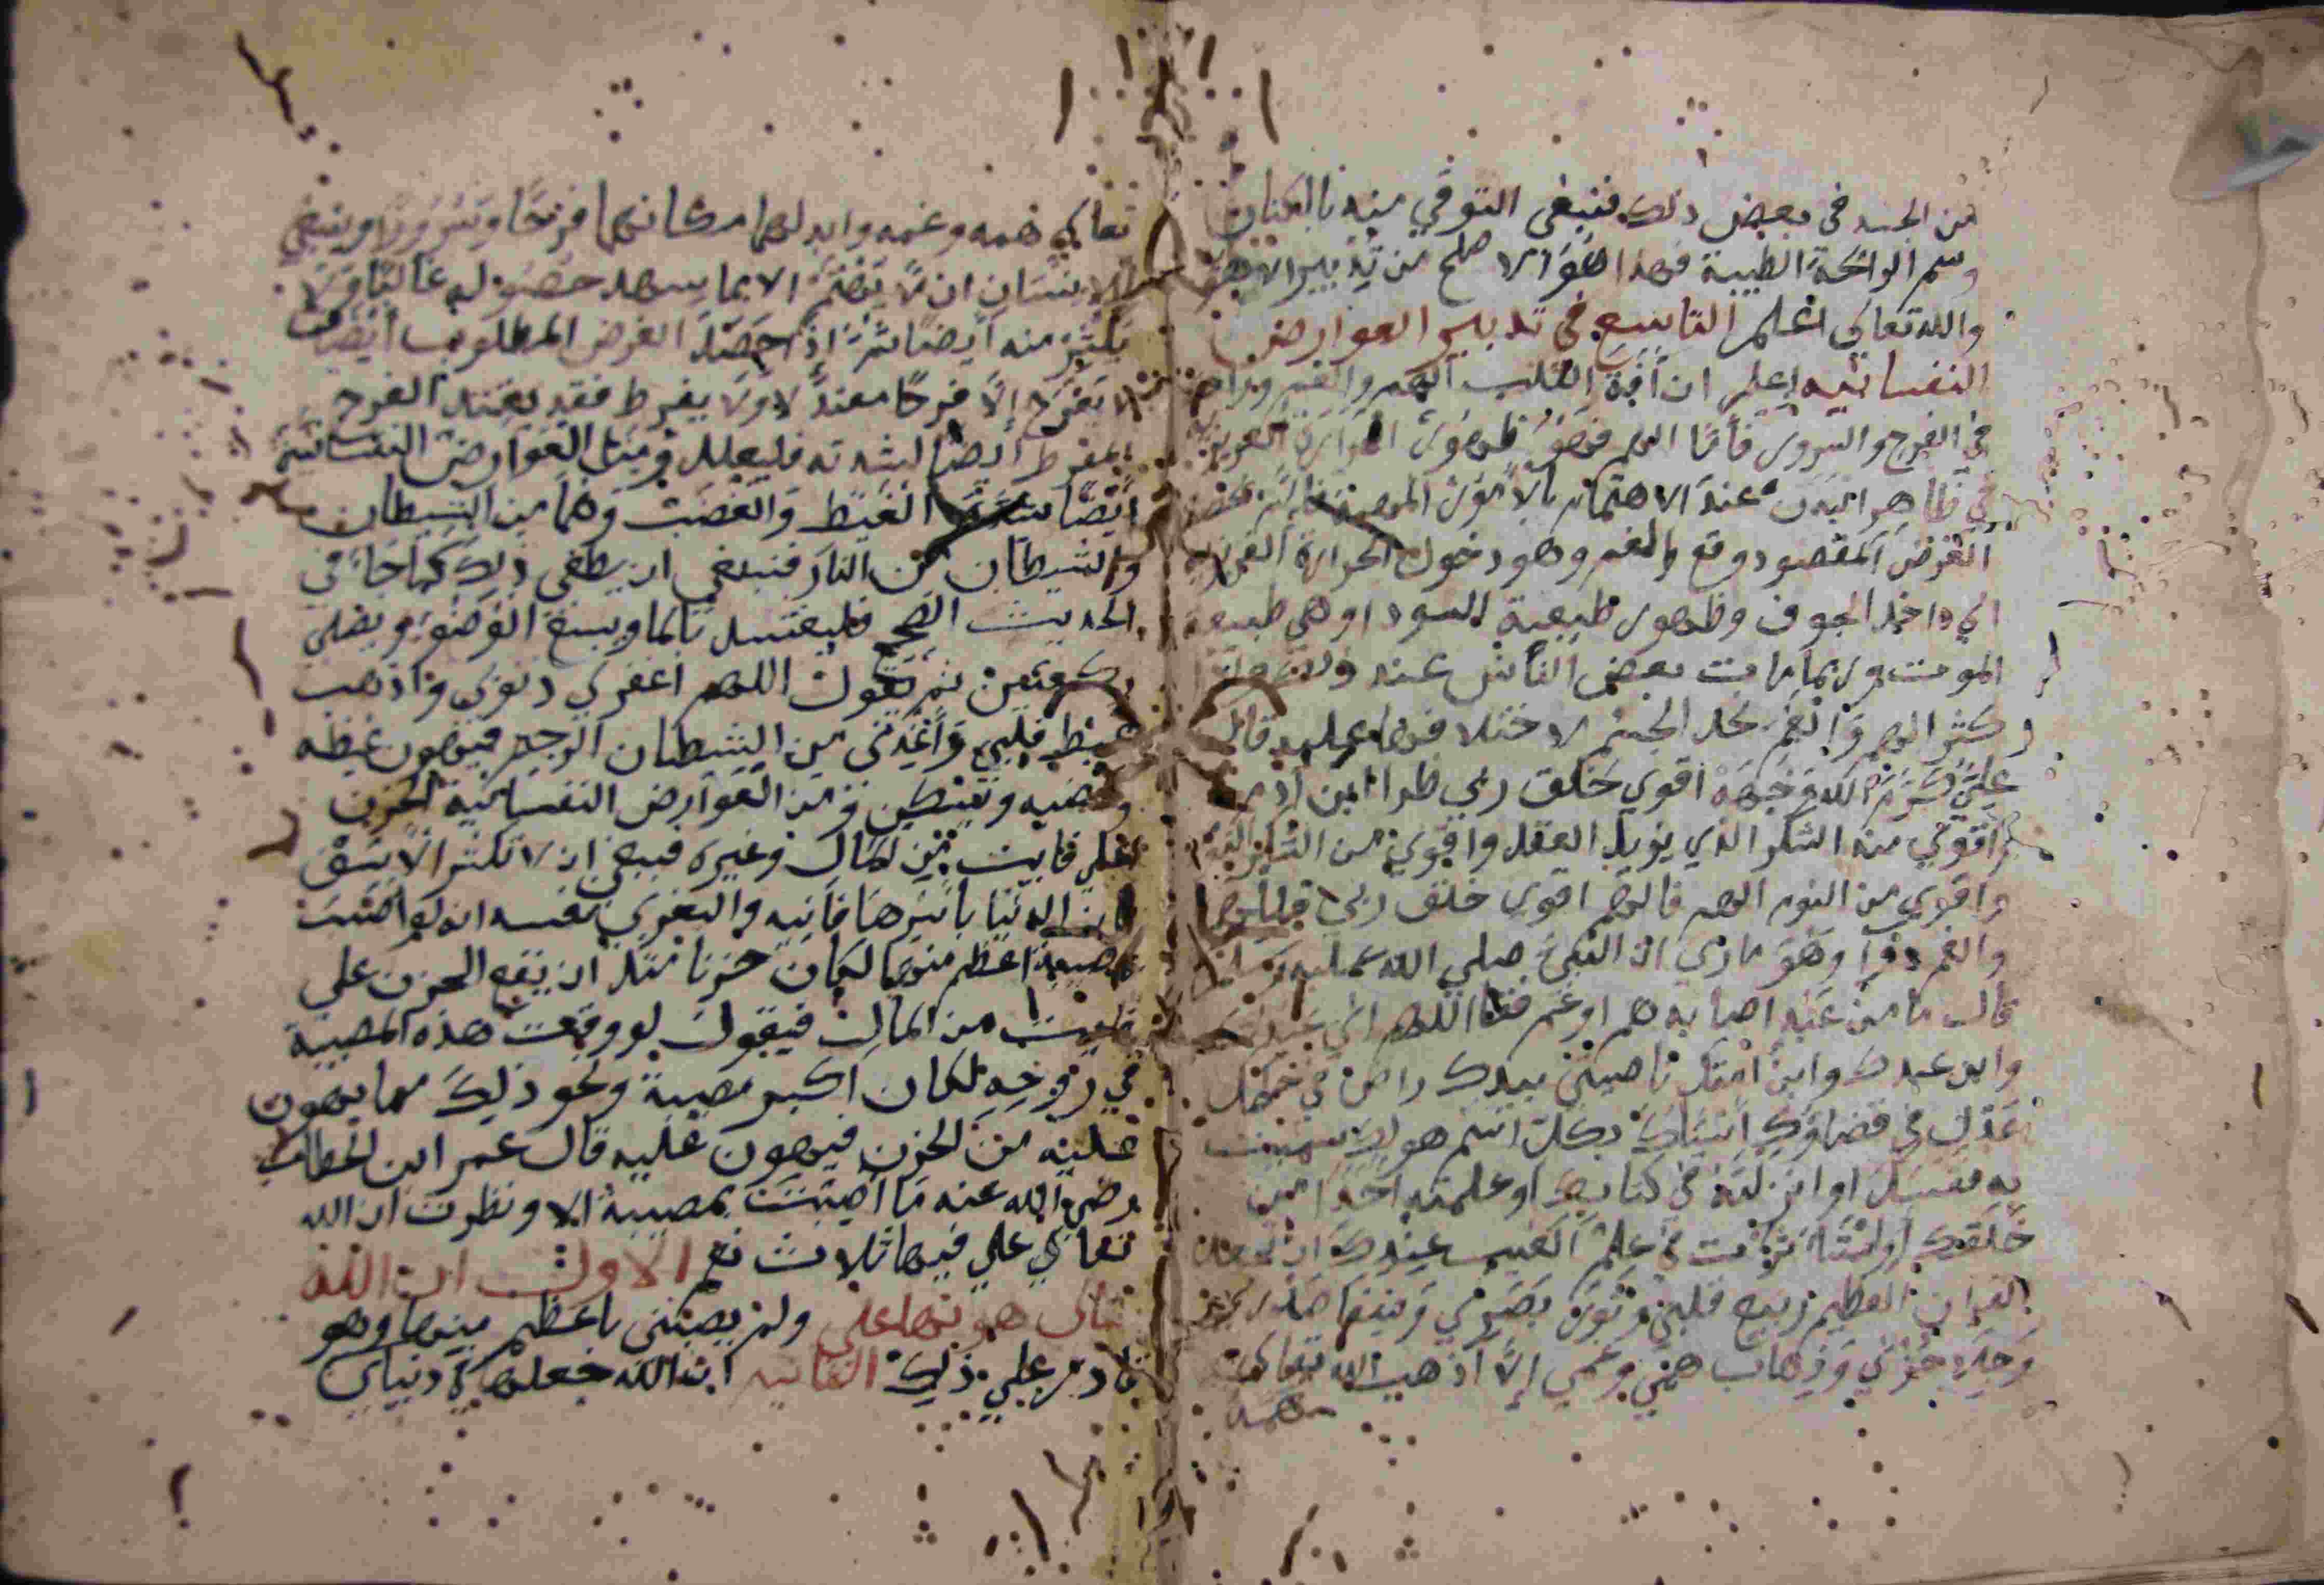 من الجسد في بعض ذلك فينبغي التوقي منه بالكتان
وشم الرائحة الطيبة فهذا هو الاصلح من تدبير الاهوية
والله تعالى اعلم التاسع في تدبير العوارض
النفسانيه اعلم ان آفة القلب الهم والغم
في الفرح والسرور فأما الهم فهو ظهور الحرارة الغريزية
في ظاهر البدن عند الاهتمام بالامور المهمة
الغرض المقصود وقع الغم وهو دخول الحرارة الغريزية
الى داخل الجوف وظهور طبيعة السودا وهي طبيعة
الموت وربما مات بعض الناس عند ذلك
وكثر الهم والغم ينحل الجسم لاختلافهما عليه قال
علي كرم الله وجهه اقوى خلق ربي طرا ابن ادم
واقوى منه السكر الذي يزيل العقل واقوى من السكر النوم
واقوى من النوم الهم فالهم اقوى خلق ربي فللهم
والغم دوآ وهو ما روي ان النبي صلى الله عليه وسلم
قال ما من عبد اصابه هم او غم فقال اللهم اني عبدك
وابن عبدك وابن امتك ناصيتي بيدك ماض في حكمك
عدل في قضاؤك اسئلك بكل اسم هو لك سميت
به نفسك او انزلته في كتابك او علمته احدا من
خلقك او استاثرت به في علم الغيب عندك ان تجعل
القران العظيم ربيع قلبي ونور بصري وشفا صدري
وجلا حزني وذهاب همي وغمي إلا اذهب الله تعالى
همه
تعالى همه وغمه وابدلهما مكانهما فرحا وسرورا وينبغي
للانسان ان لا يهتم الا بما يسهل حصوله غالبا ولا
يكثر منه ايضا ثم اذا حصل الغرض المطلوب ايضا
لا يفرح إلا فرحا معتدلا ولا يفرط فقد يقتل الفرح
المفرط ايضا لشدته فليعلل ومن العوارض النفسانية
ايضا شدة الغيظ والغضب وهما من الشيطان
والشيطان من النار فينبغي ان يطفي ذلك كما جاء في
الحديث الصحيح فليغتسل بالما ويسبغ الوضوء ويصلي
ركعتين ثم يقول اللهم اغفر لي ذنوبي واذهب
غيظ قلبي واعذني من الشيطان الرجيم فيهون غيظه
وغضبه ويسكن ومن العوارض النفسانية الحزن
على فايت من مال وغيره فينبغي ان لا تكثر الاسف
فان الدنيا باسرها فانيه واليعزي نفسه انه لو اصيب
بمصيبة اعظم منها لكان حزنا مثل ان يقع الحزن على
فايت من المال فيقول لو وقعت هذه المصيبة
في زوجه لكان اكبر مصيبة ونحو ذلك مما يهون
عليه من الحزن فيهون عليه قال عمر ابن الخطاب
رضي الله عنه ما اصبت بمصيبة الا ونظرت ان الله
تعالى علي فيها ثلاث نعم الاولى ان الله
تعالى هونها علي ولم يصبني باعظم منها وهو
قادر على ذلك الثانيه ان الله جعلها في دنياي